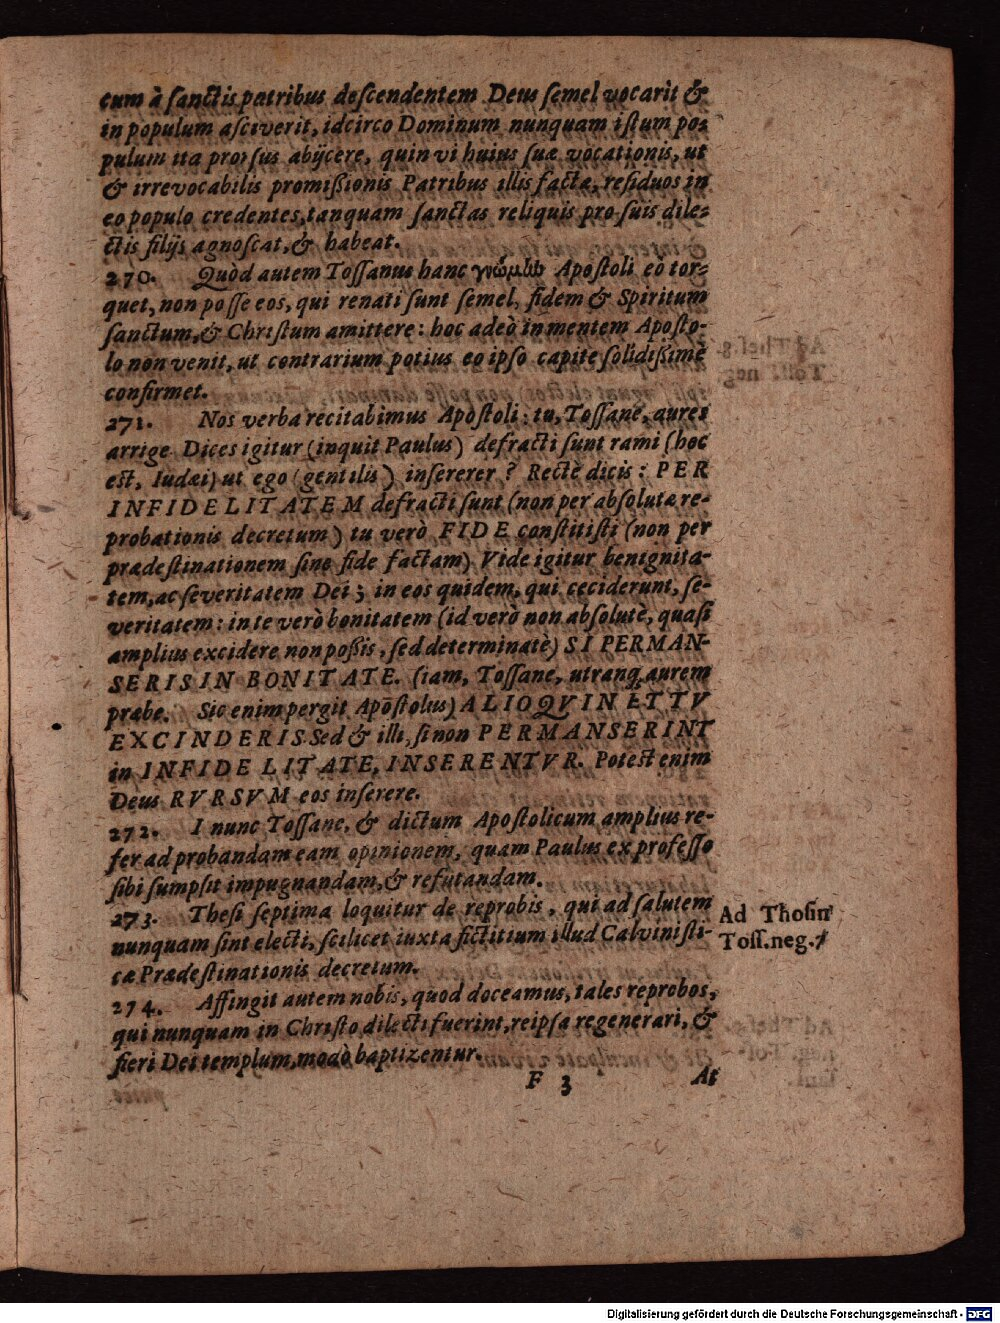 cum à ſanctis patribus deſcendentem Deus ſemel vocarit &
in populum aſciverit, idcirco Dominum nunquam iſtum po-
pulum ita prorſus abijcere, quin vi huius ſuæ vocationis, ut
& irrevocabilis promiſsionis Patribus illis factæ, reſiduos in
eo populo credentes, tanquam ſanctas reliquias pro ſuis dile-
ctis filijs agnoſcat, & habeat.
270. Quòd autem Toſſanus hanc γνώμην Apoſtoli eò tor-
quet, non poſſe eos, qui renati ſunt ſemel, fidem & Spiritum
ſanctum, & Chriſtum amittere: hoc adeò in mentem Apoſto-
lo non venit, ut contrarium potius eo ipſo capite ſolidiſsimè
confirmet.
271. Nos verba recitabimus Apoſtoli: tu, Toſſane, aures
arrige Dices igitur (inquit Paulus) defracti ſunt rami (hoc
eſt, Iudæi) ut ego (gentilis) inſererer? Rectè dicis: PER
INFIDELITATEM defracti ſunt (non per abſolutæ re-
probationis decretum) tu verò FIDE conſtitiſti (non per
prædeſtinationem ſine fide factam) Vide igitur benignita-
tem, ac ſeveritatem Dei; in eos quidem, qui ceciderunt, ſe-
veritatem: in te verò bonitatem (id verò non abſolutè, quaſi
amplius excidere non poſsis, ſed determinatè) SI PERMAN-
SERIS IN BONITATE. (iam, Toſſane, utranq, aurem
præbe. Sic enim pergit Apoſtolus) ALIOQVIN ET TV
EXCINDERIS. Sed & illi, ſi non PERMANSERINT
in INFIDELITATE, INSERENTVR. Poteſt enim
Deus RVRSVM eos inſerere.
272. I nunc Toſſane, & dictum Apoſtolicum amplius re-
fer ad probandam eam opinionem, quam Paulus ex profeſſo
ſibi ſumpſit impugnandam, & refutandam.
273. Theſi ſeptima loquitur de reprobis, qui ad ſalutem
nunquam ſint electi, ſcilicet iuxta fictitium illud Calviniſti-
cæ Prædeſtinationis decretum.
Ad Theſin
Toſſ. neg. 7
274. Affingit autem nobis, quod doceamus, tales reprobos,
qui nunquam in Chriſto dilecti fuerint, reipſa regenerari, &
fieri Dei templum, modò baptizentur.
F 3 At
Digitalisierung gefördert durch die Deutsche Forschungsgemeinschaft - DFG